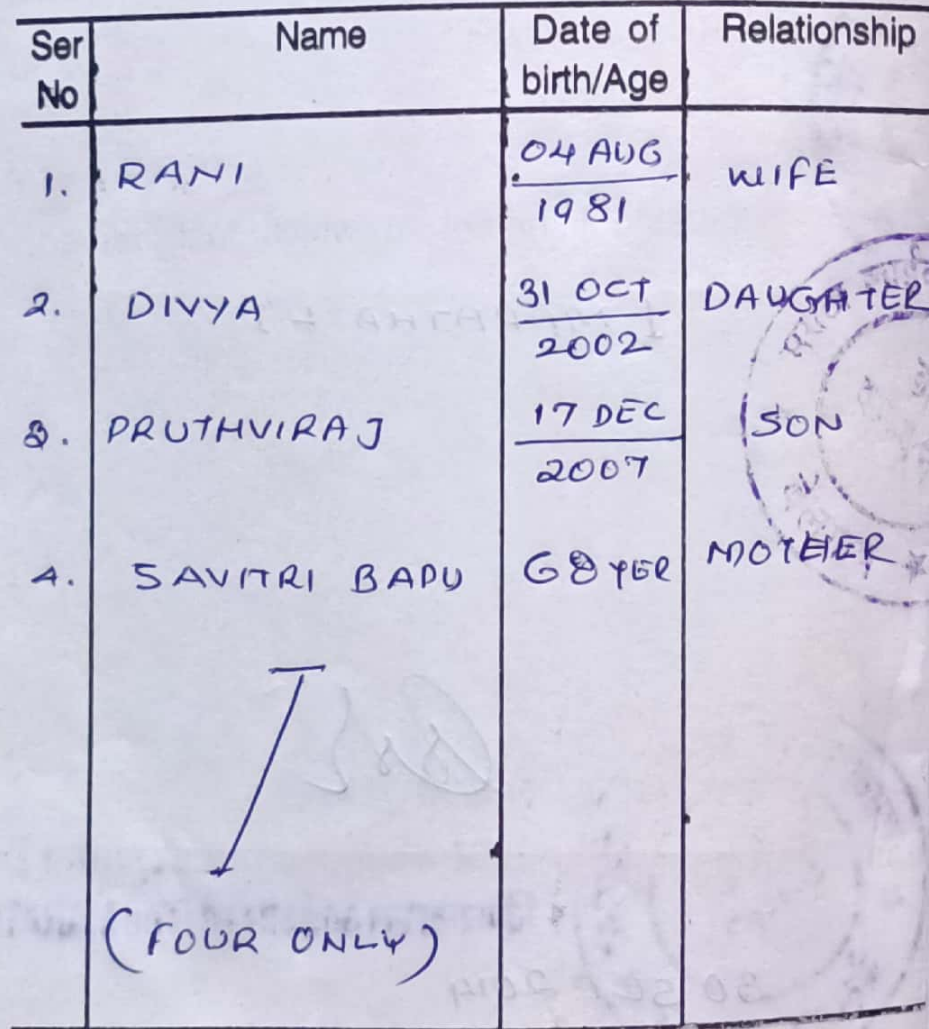 Ser No Name Date of birth/Age Relationship
1. RANI 04 AUG 1981 WIFE
2. DIVYA 31 OCT 2002 DAUGHTER
3. PRUTHVIRAJ 17 DEC 2007 SON
4. SAVITRI BAPU 68 YER MOTHER
(FOUR ONLY)
30 SEP 2014